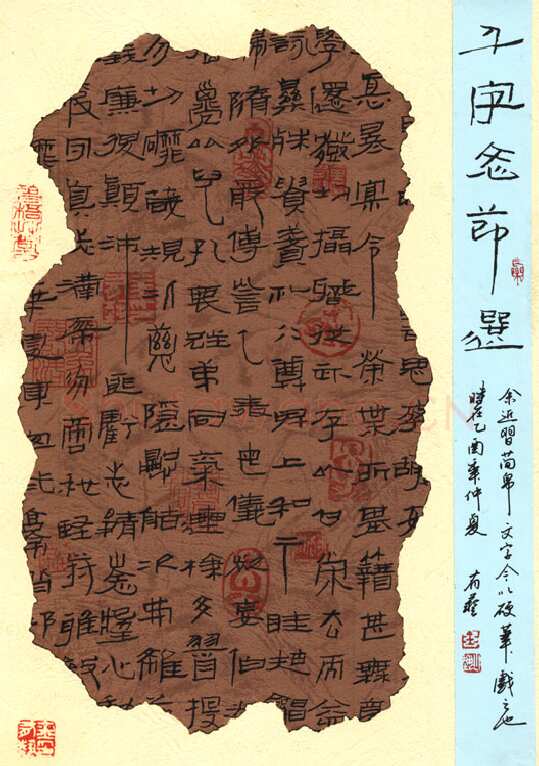 千字文節選
余近習簡帛文字今以硬筆戲之也
時乙酉年仲夏
若思言辭安
慎終宜令榮業所基籍甚無竟
學優登仕攝職從政存以甘棠去而益
詠樂殊貴賤禮別尊卑上和下睦夫唱
婦隨外受傅訓入奉母儀諸姑伯叔
猶子比兒孔懷兄弟同氣連枝交友投
分切磨箴規仁慈隱惻造次弗離節
義廉退顛沛匪虧性靜情逸心動
疲守真志滿逐物意移堅持雅操
華夏東西二京背邙